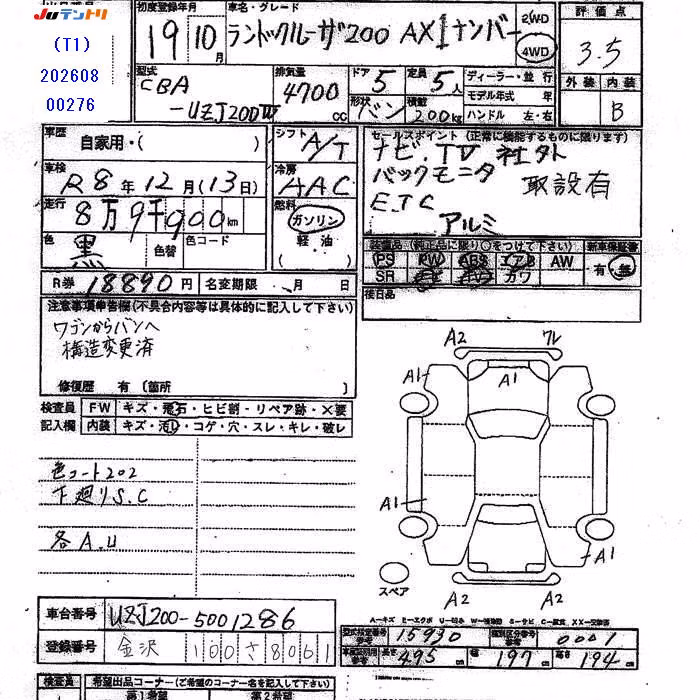 JUテントリ
(T1)
202608
00276
初度登録年月
19年10月
車名・グレード
ランドクルーザ200 AX 1ナンバー
2WD
4WD
評価点
3.5
外装 内装
B
型式
CBA
-UZJ200W
排気量
4700cc
ドア 5
形状 バン
定員 5人
積載 200kg
ディーラー・並行
モデル年式 年
ハンドル 左・右
車歴
自家用・( )
シフト
A/T
車検
R8年12月(13日)
冷房
AAC
走行
8万9千900km
燃料
ガソリン
軽油
色
黒
色替
色コード
R券 18890円
名変期限 月 日
セールスポイント(正常に機能するものに限ります)
ナビ.TV 社外
バックモニタ 取説有
ETC
アルミ
装備品(純正品に限り○をつけて下さい)
新車保証書
PS PW ABS エアB AW
SR カワ
有・無
後日品
注意事項申告欄(不具合内容等は具体的に記入して下さい)
ワゴンからバンへ
構造変更済
修復歴 有(箇所 )
検査員
記入欄
FW キズ・飛石・ヒビ割・リペア跡・×要
内装 キズ・汚レ・コゲ・穴・スレ・キレ・破レ
色コート202
下廻りS.C
各A.U
A2
ワレ
A1
A1
A1
A1
A2
A2
スペア
車台番号 UZJ200-5001286
登録番号 金沢 100 さ 8061
A−キズ E−エクボ U−凹ミ W−補修跡 S−サビ C−腐食 XX−交換済
型式指定番号 15930
類別区分番号 0001
長さ 495cm
幅 197cm
高さ 194cm
検査員
希望出品コーナー(ご希望のコーナー名を記入して下さい)
第1希望
第2希望